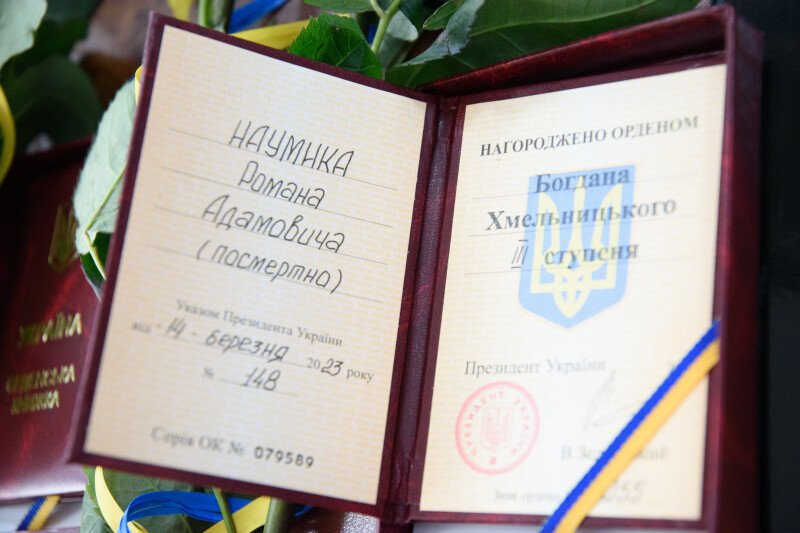 УКРАЇНА
НАУМИКА
Романа
Адамовича
(посмертно)
Указом Президента України
від - 14 - березня 2023 року
№ 148
Серія ОК № 079589
НАГОРОДЖЕНО ОРДЕНОМ
Богдана
Хмельницького
III ступеня
Президент України
ПРЕЗИДЕНТ УКРАЇНИ
Знак ордена